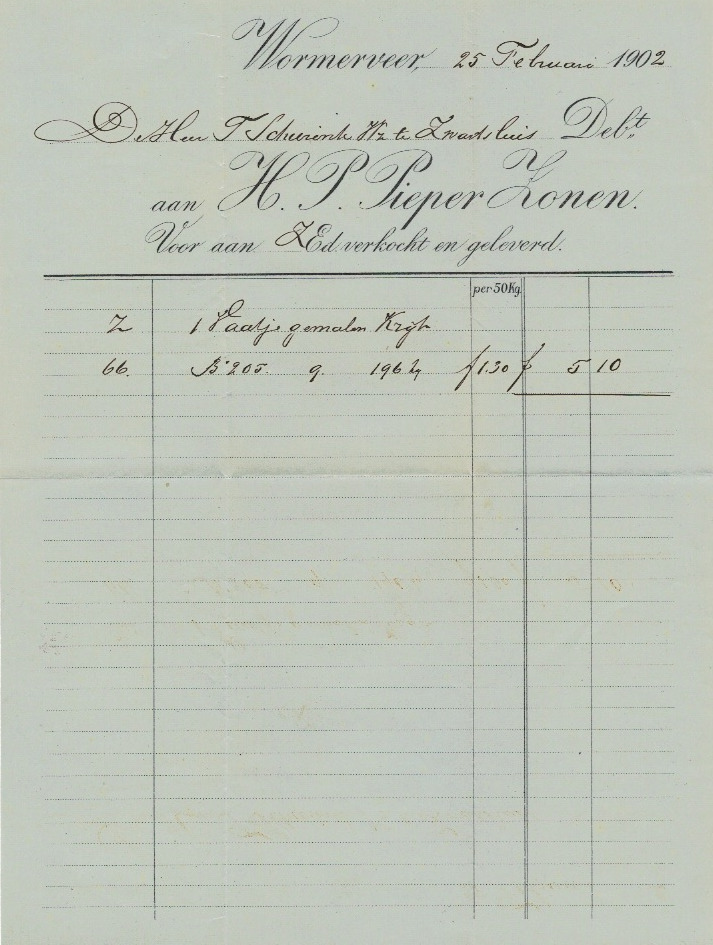 Wormerveer, 25 Februari 1902
De Heer T Schuurink Wz te Zwartsluis Debt.
aan H. P. Pieper Zonen.
Voor aan ZEd. verkocht en geleverd.
per 50 Kg.
Z 1 Vaatje gemalen Kryt
66. Bo 205. 9. 196 f 1.30 f 5 10